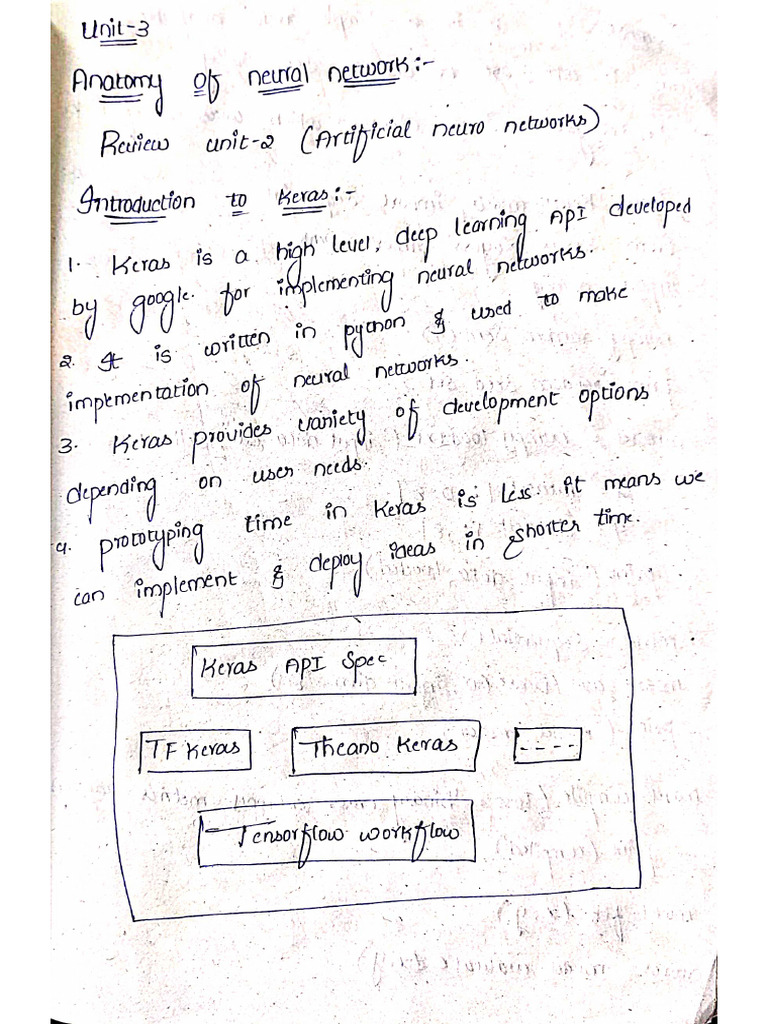 Unit-3
Anatomy of neural network:-
Review unit-2 (Artificial neuro networks)
Introduction to Keras:-
1. Keras is a high level, deep learning API developed
by google for implementing neural networks.
2. It is written in python & used to make
implementation of neural networks.
3. Keras provides variety of development options
depending on user needs.
4. prototyping time in Keras is less. it means we
can implement & deploy ideas in shorter time.
Keras API Spec
TF Keras
Theano Keras
----
Tensorflow workflow